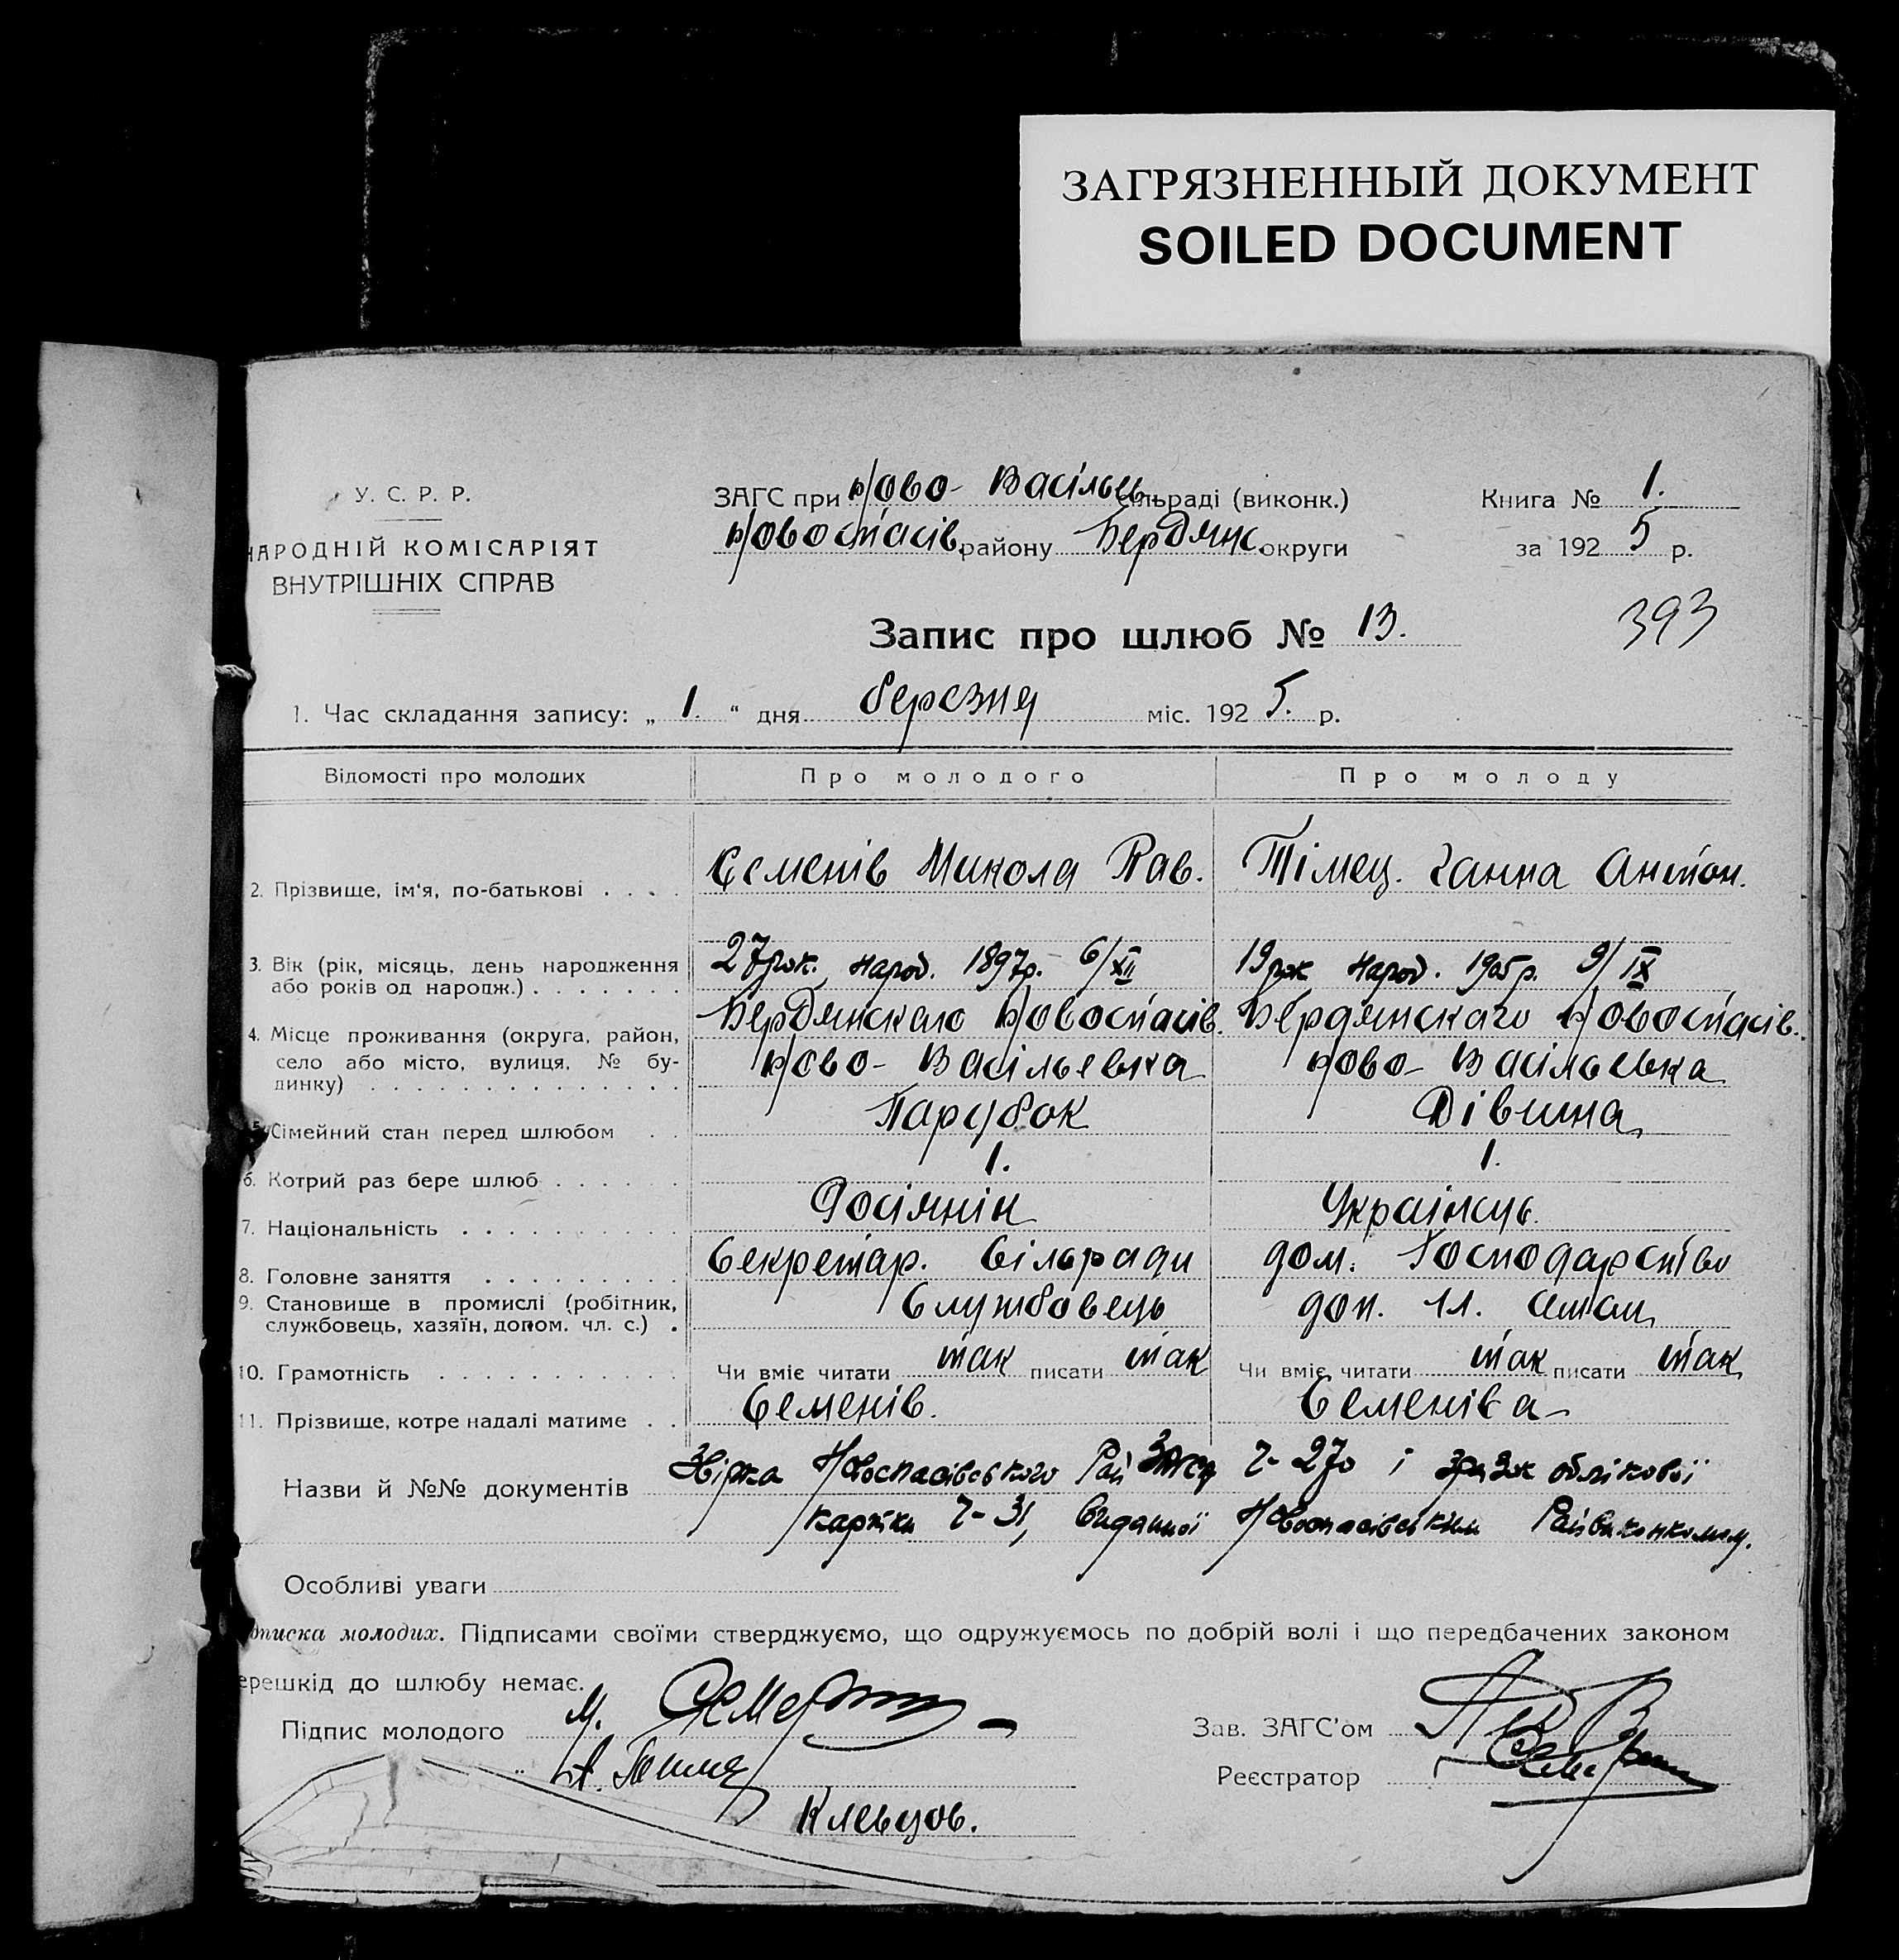 ЗАГРЯЗНЕННЫЙ ДОКУМЕНТ
SOILED DOCUMENT
У. С. Р. Р.
НАРОДНІЙ КОМІСАРІЯТ
ВНУТРІШНІХ СПРАВ
ЗАГС при Ново-Васільев. сільраді (виконк.)
Новоспасів. району Бердянс. округи
Книга № 1.
за 1925 р.
393
Запис про шлюб № 13.
1. Час складання запису: „ 1. “ дня березня міс. 1925. р.
Відомості про молодих Про молодого Про молоду
2. Прізвище, ім‘я, по-батькові . . . . Семенів Микола Пав. Тімец. Ганна Антон.
3. Вік (рік, місяць, день народження 27 рок. народ. 1897р. 6/XII 19 рок народ. 1905р. 9/IX
або років од народж.) . . . . . . .
4. Місце проживання (округа, район, Бердянскаго Новоспасів. Бердянскаго Новоспасів.
село або місто, вулиця, № бу- Ново-Васільевка Ново-Васільевка
динку) . . . . . . . . . . . . . . .
5. Сімейний стан перед шлюбом . . Парубок Дівчина
6. Котрий раз бере шлюб . . . . . 1. 1.
7. Національність . . . . . . . . . Росіянін Українць.
8. Головне заняття . . . . . . . . Секретар. Сільради дом. Господарство
9. Становище в промислі (робітник, Службовець доп. чл.
службовець, хазяїн, допом. чл. с.) .
10. Грамотність . . . . . . . . . . Чи вміє читати так писати так Чи вміє читати так писати так
11. Прізвище, котре надалі матиме . . Семенів. Семеніва
Назви й №№ документів Новоспасівського Рай ЗАГСу Ч-270 і зразок облікової
картки Ч-31, виданної Новоспасівським Райвиконкомом.
Особливі уваги
дписка молодих. Підписами своїми стверджуємо, що одружуємось по добрій волі і що передбачених законом
ерешкід до шлюбу немає.
Підпис молодого М. Зав. ЗАГС'ом
„ А. Реєстратор
Клевцов.